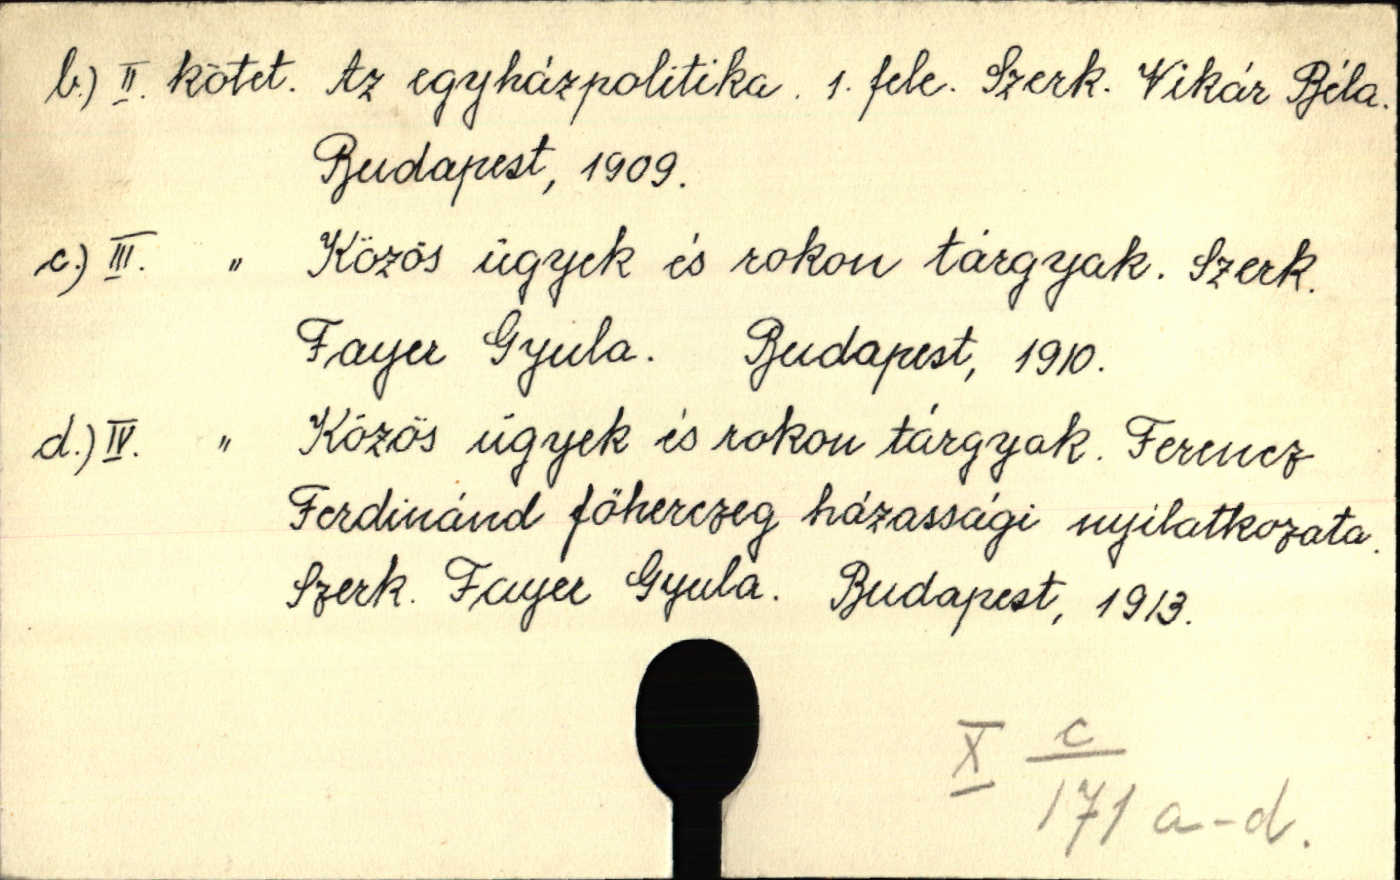 b.) II. kötet. Az egyházpolitika. 1. fele. Szerk. Vikár Béla.
Budapest, 1909.
c.) III. " Közös ügyek és rokon tárgyak. Szerk.
Fayer Gyula. Budapest, 1910.
d.) IV. " Közös ügyek és rokon tárgyak. Ferencz
Ferdinánd főherczeg házassági nyilatkozata.
Szerk. Fayer Gyula. Budapest, 1913.
X c
171 a-d.